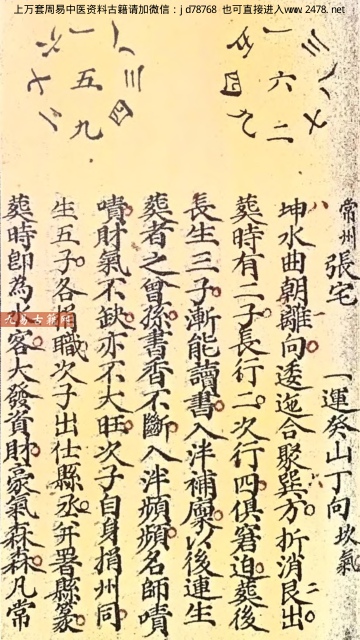 上万套周易中医资料古籍请加微信：jd78768 也可直接进入www.2478.net
三 八 七
一 六 二
五 四 九
八 三 四
一 五 九
六 七 二
常州張宅 一運癸山丁向 坎氣
坤水曲朝離向逶迤合聚巽方折消艮出
葬時有二子長行二次行四俱窘迫葬後
長生三子漸能讀書入泮補廩以後連生
葬者之曾孫書香不斷入泮頻頻名師嘖
嘖財氣不缺亦不大旺次子自身捐州同
生五子各有職次子出仕縣丞弁署縣篆
葬時卽為 客大發資財豪氣森森凡常